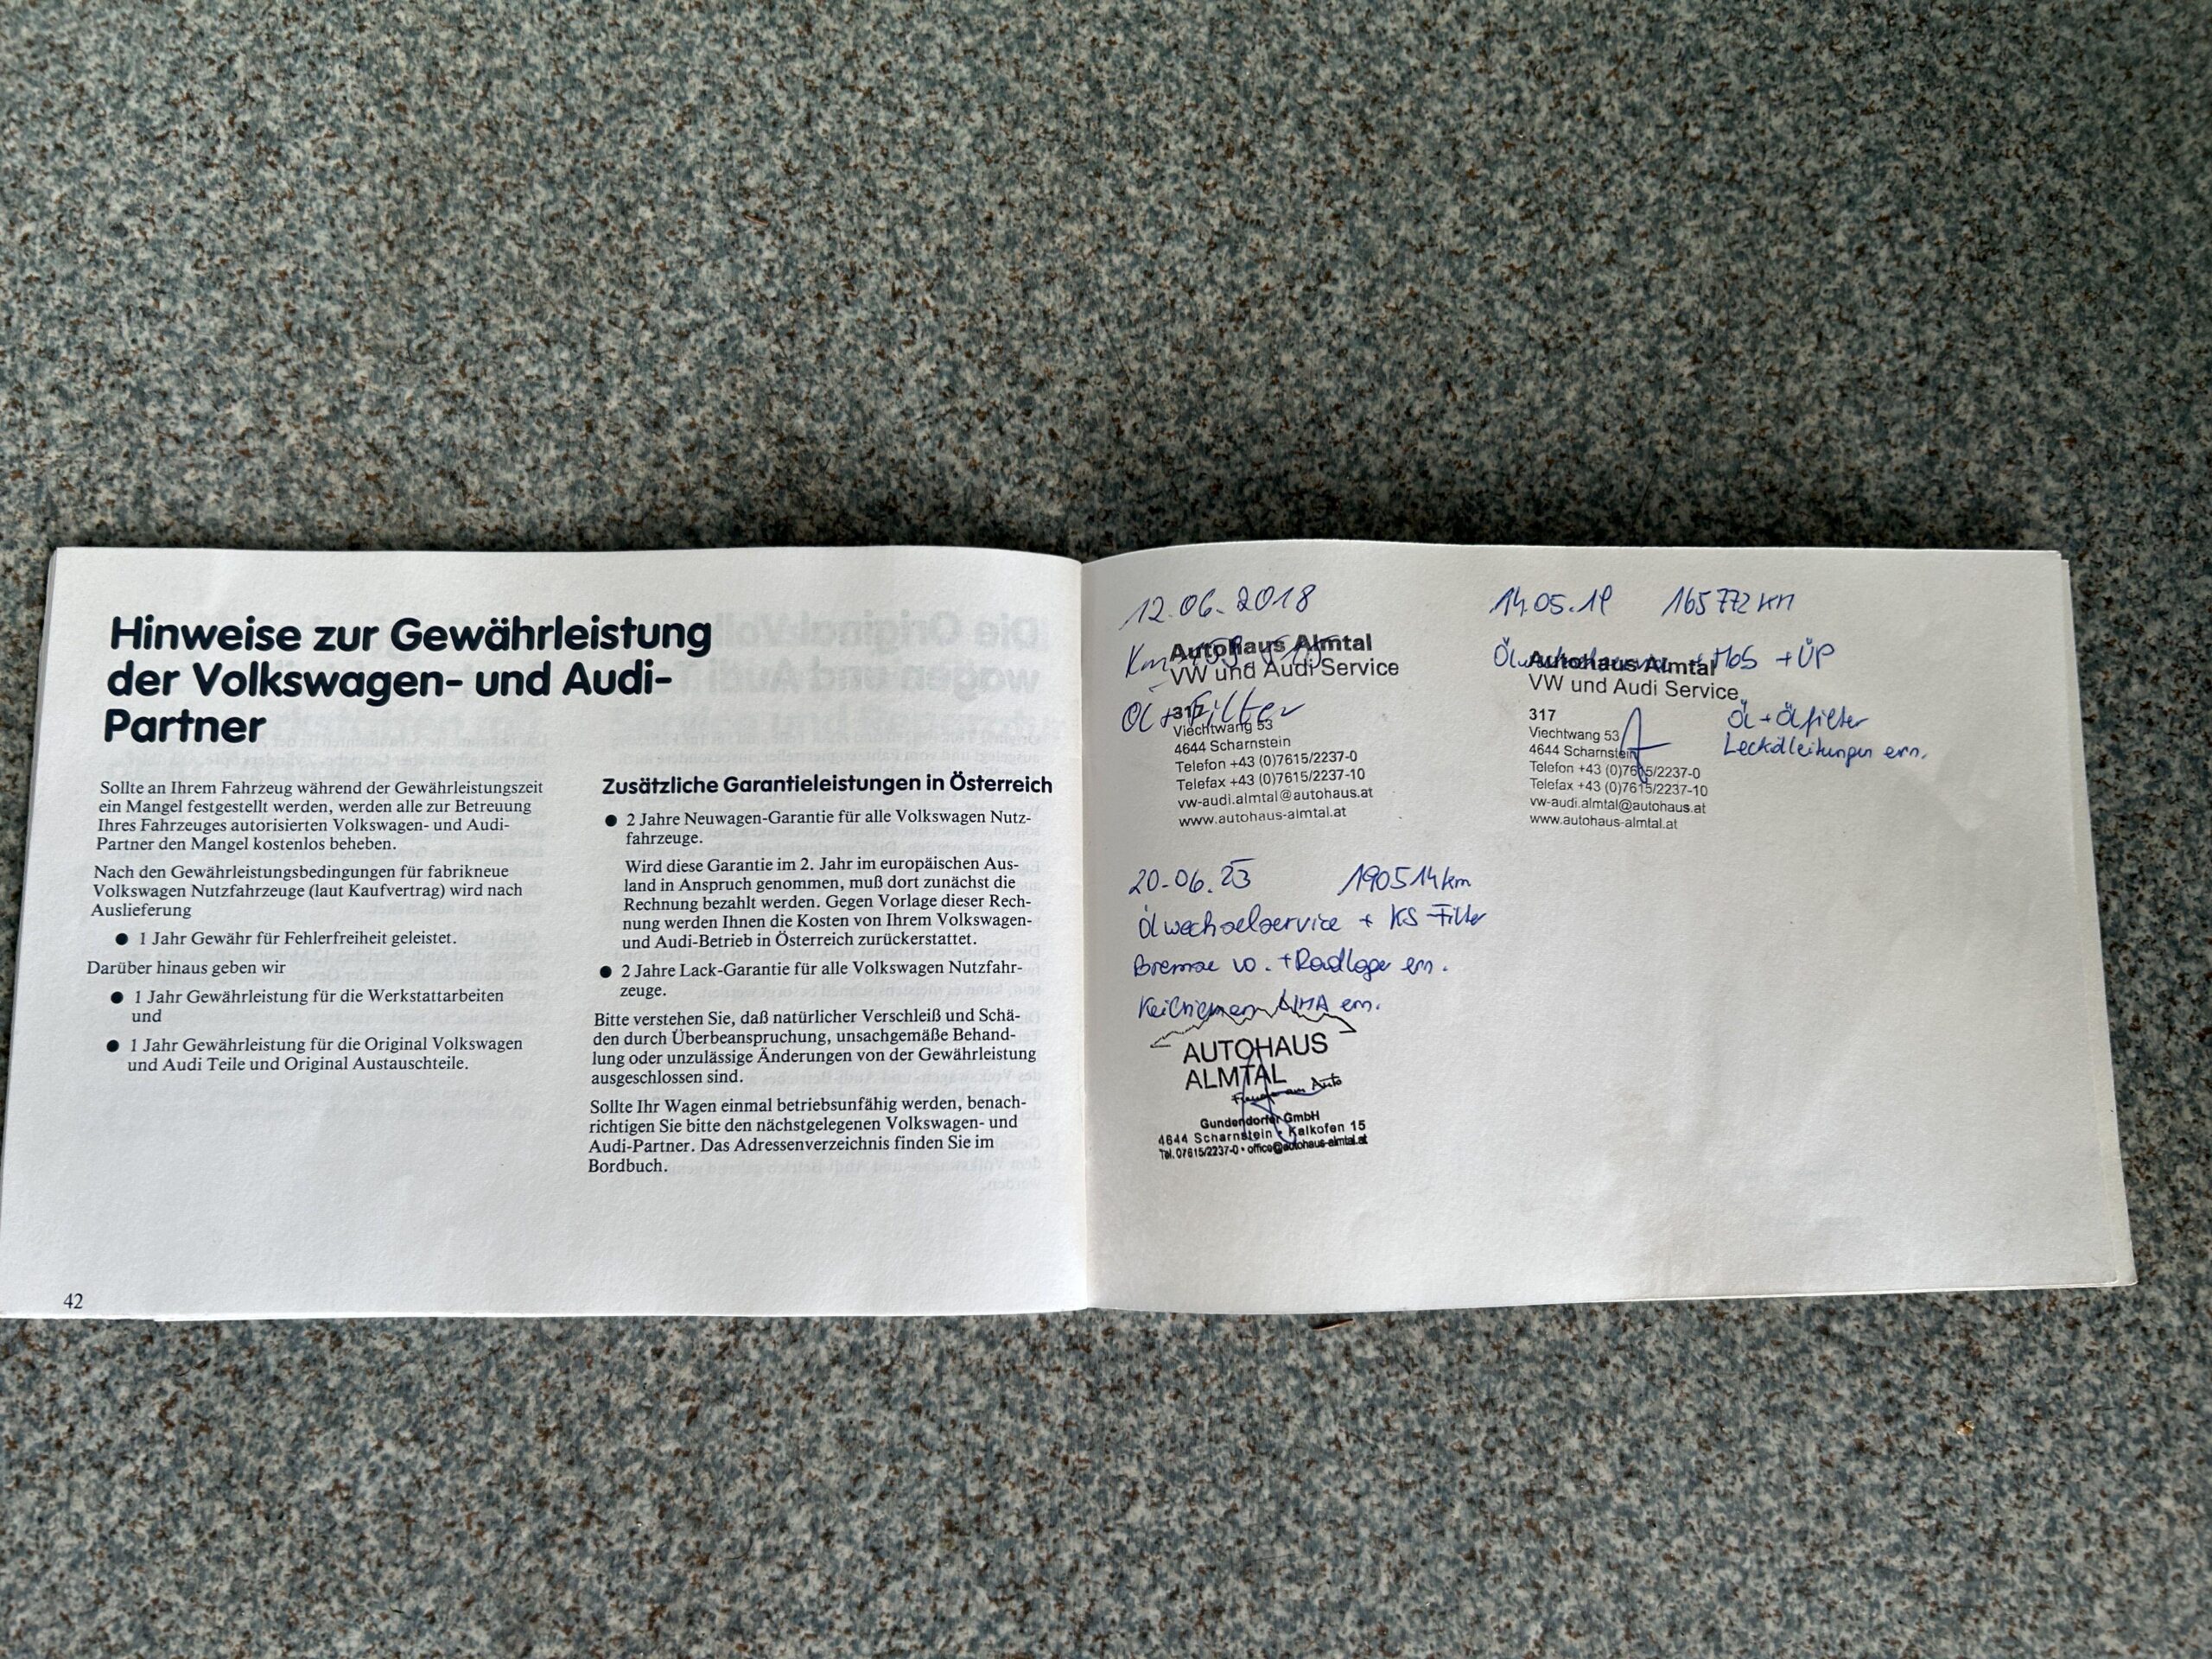 Hinweise zur Gewährleistung
der Volkswagen- und Audi-
Partner
Sollte an Ihrem Fahrzeug während der Gewährleistungszeit
ein Mangel festgestellt werden, werden alle zur Betreuung
Ihres Fahrzeuges autorisierten Volkswagen- und Audi-
Partner den Mangel kostenlos beheben.
Nach den Gewährleistungsbedingungen für fabrikneue
Volkswagen Nutzfahrzeuge (laut Kaufvertrag) wird nach
Auslieferung
● 1 Jahr Gewähr für Fehlerfreiheit geleistet.
Darüber hinaus geben wir
● 1 Jahr Gewährleistung für die Werkstattarbeiten
und
● 1 Jahr Gewährleistung für die Original Volkswagen
und Audi Teile und Original Austauschteile.
42
Zusätzliche Garantieleistungen in Österreich
● 2 Jahre Neuwagen-Garantie für alle Volkswagen Nutz-
fahrzeuge.
Wird diese Garantie im 2. Jahr im europäischen Aus-
land in Anspruch genommen, muß dort zunächst die
Rechnung bezahlt werden. Gegen Vorlage dieser Rech-
nung werden Ihnen die Kosten von Ihrem Volkswagen-
und Audi-Betrieb in Österreich zurückerstattet.
● 2 Jahre Lack-Garantie für alle Volkswagen Nutzfahr-
zeuge.
Bitte verstehen Sie, daß natürlicher Verschleiß und Schä-
den durch Überbeanspruchung, unsachgemäße Behand-
lung oder unzulässige Änderungen von der Gewährleistung
ausgeschlossen sind.
Sollte Ihr Wagen einmal betriebsunfähig werden, benach-
richtigen Sie bitte den nächstgelegenen Volkswagen- und
Audi-Partner. Das Adressenverzeichnis finden Sie im
Bordbuch.
12.06.2018
Km
Autohaus Almtal
VW und Audi Service
Öl + Filter
317
Viechtwang 53
4644 Scharnstein
Telefon +43 (0)7615/2237-0
Telefax +43 (0)7615/2237-10
vw-audi.almtal@autohaus.at
www.autohaus-almtal.at
14.05.19 165772 km
+ ÜP
Autohaus Almtal
VW und Audi Service
317
Viechtwang 53
4644 Scharnstein
Telefon +43 (0)7615/2237-0
Telefax +43 (0)7615/2237-10
vw-audi.almtal@autohaus.at
www.autohaus-almtal.at
Öl + Ölfilter
Leckölleitungen ern.
20.06.23 190514 km
Ölwechselservice + KS-Filter
Bremse vo. + Radlager ern.
Keilriemen LIMA ern.
AUTOHAUS
ALMTAL
Freude am Auto
Gundendorfer GmbH
4644 Scharnstein • Kalkofen 15
Tel. 07615/2237-0 • office@autohaus-almtal.at